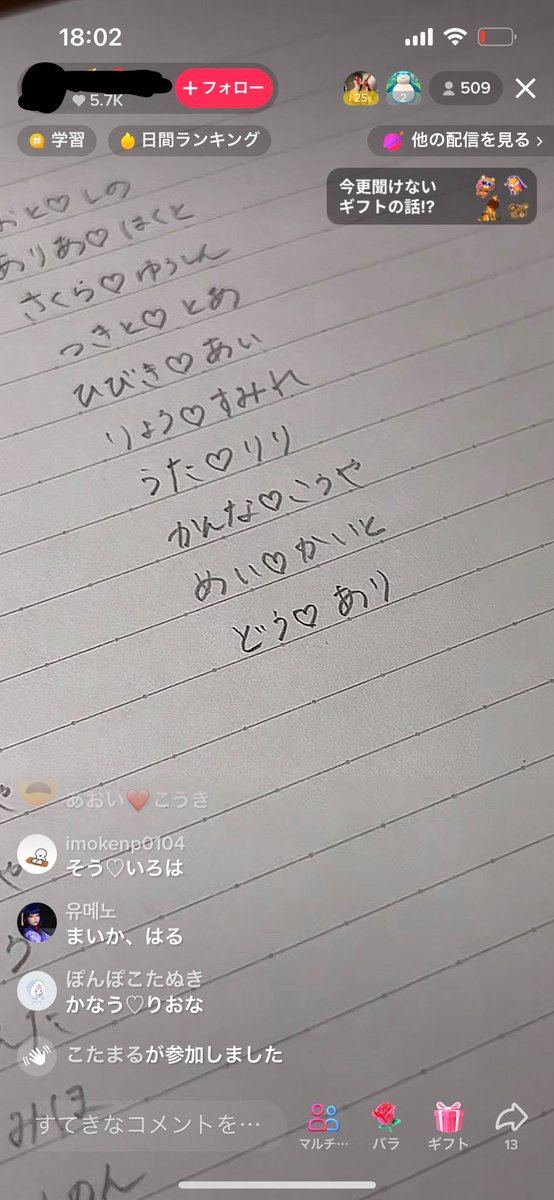 18:02
5.7K
+フォロー
25
2
509
学習
日間ランキング
他の配信を見る
今更聞けない
ギフトの話!?
おと♡しの
ありあ♡はくと
さくら♡ゆうしん
つきと♡とあ
ひびき♡あい
りょう♡すみれ
うた♡りり
かんな♡こうや
めい♡かいと
どう♡あり
あおい❤️こうき
imokenp0104
そう♡いろは
유메노
まいか、はる
ぽんぽこたぬき
かなう♡りおな
こたまるが参加しました
みほ
すてきなコメントを…
マルチ…
バラ
ギフト
13